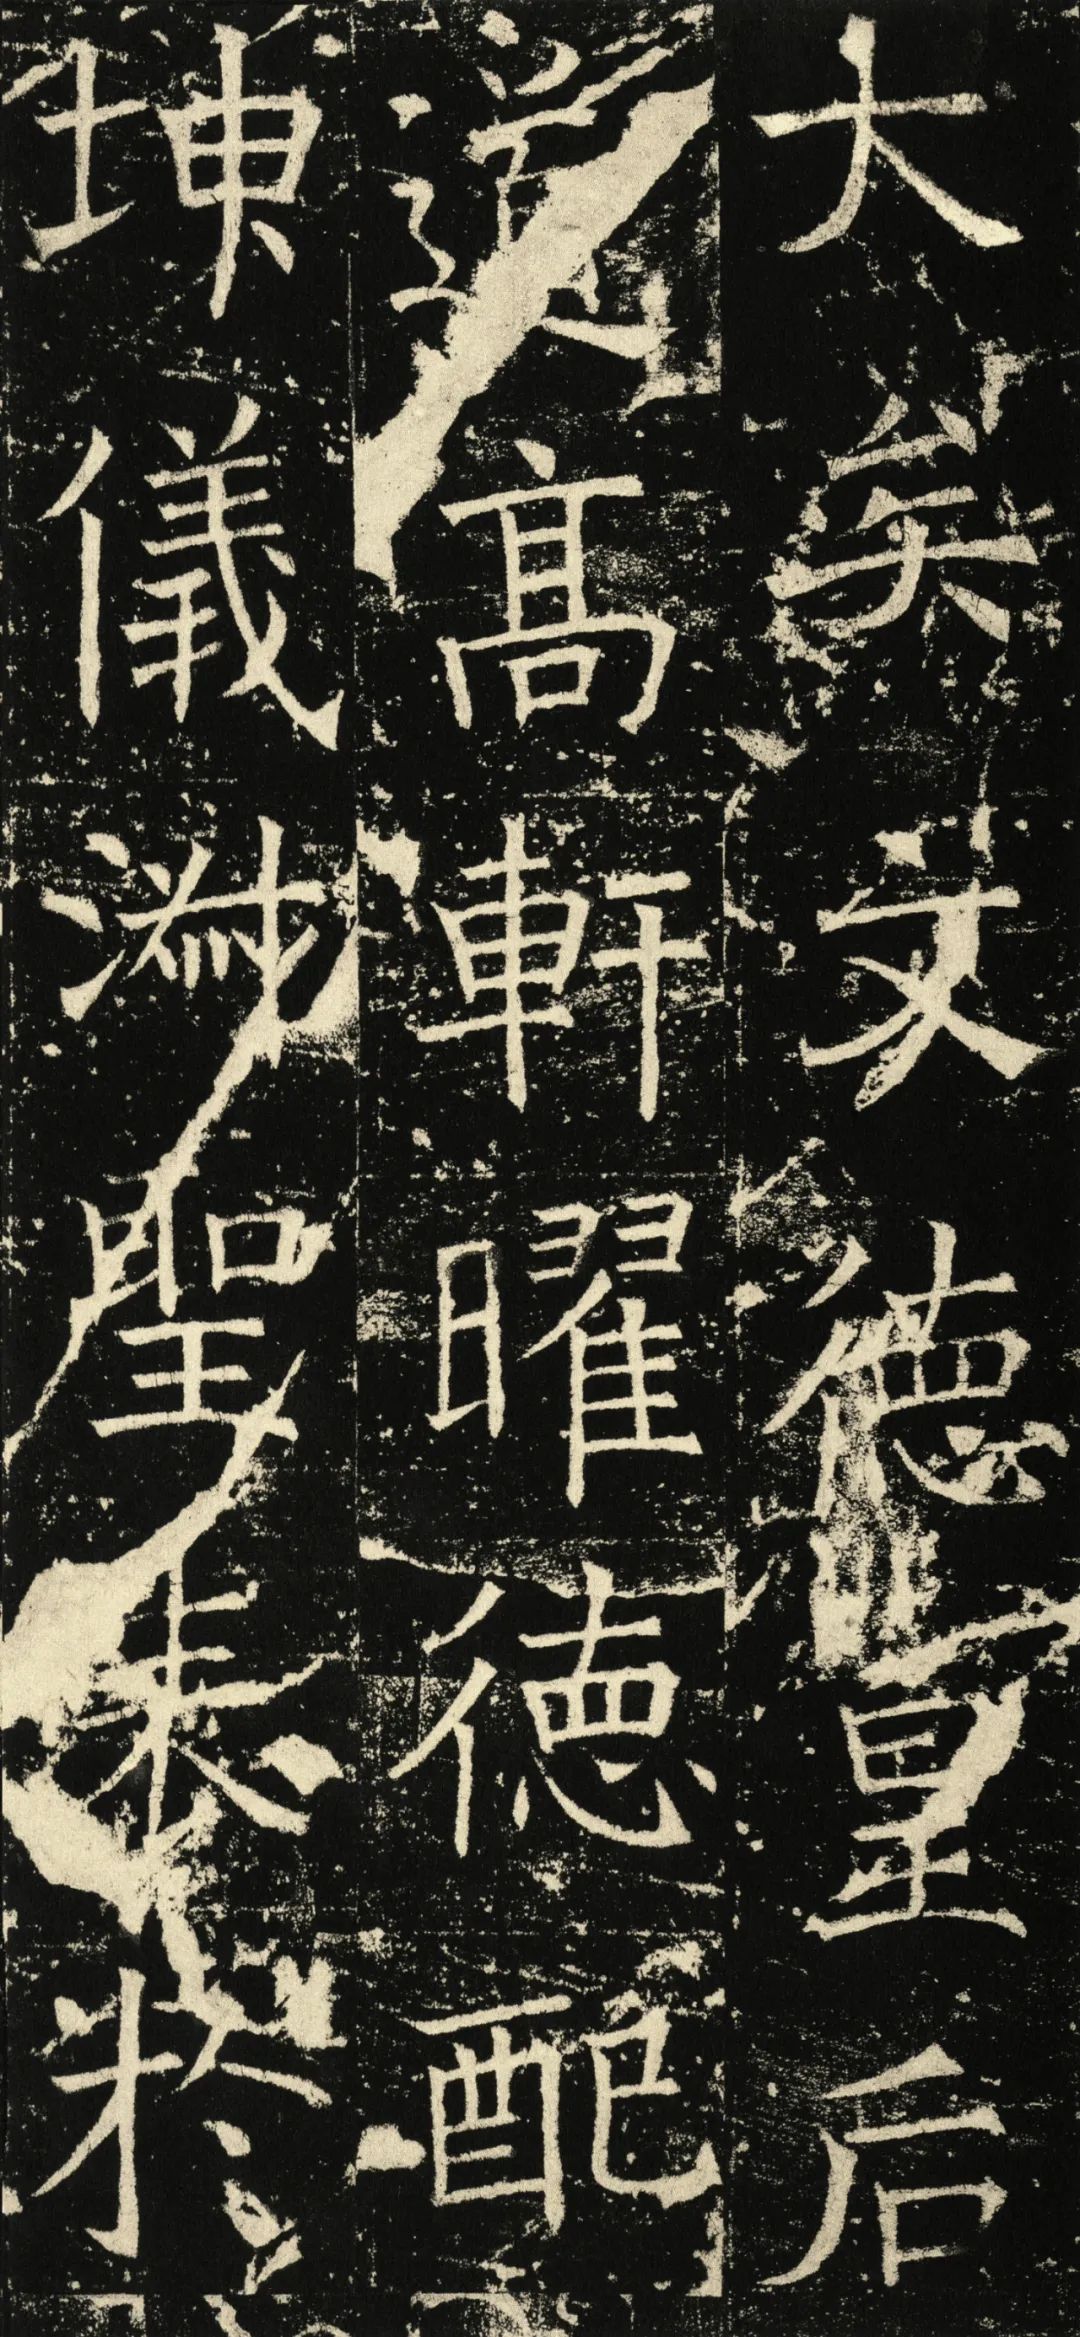 大矣文德皇后
道髙軒曜德配
坤儀淑聖表於